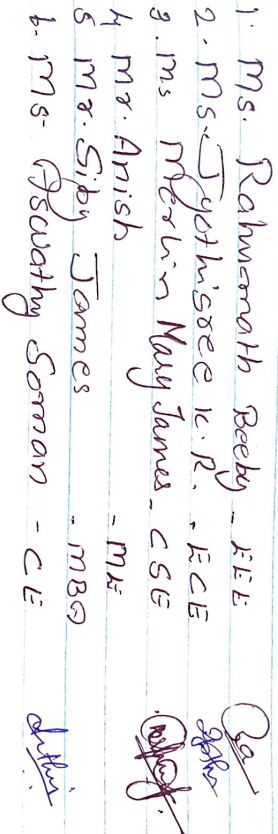 1. Ms. Rahmath Beeby - EEE
2. Ms. Jyothisree K.R. - ECE
3. Ms Merlin Mary James - CSE
4 Mr. Anish - ME
5 Mr. Siby James - MBA
6. Ms- Aswathy Soman - CE